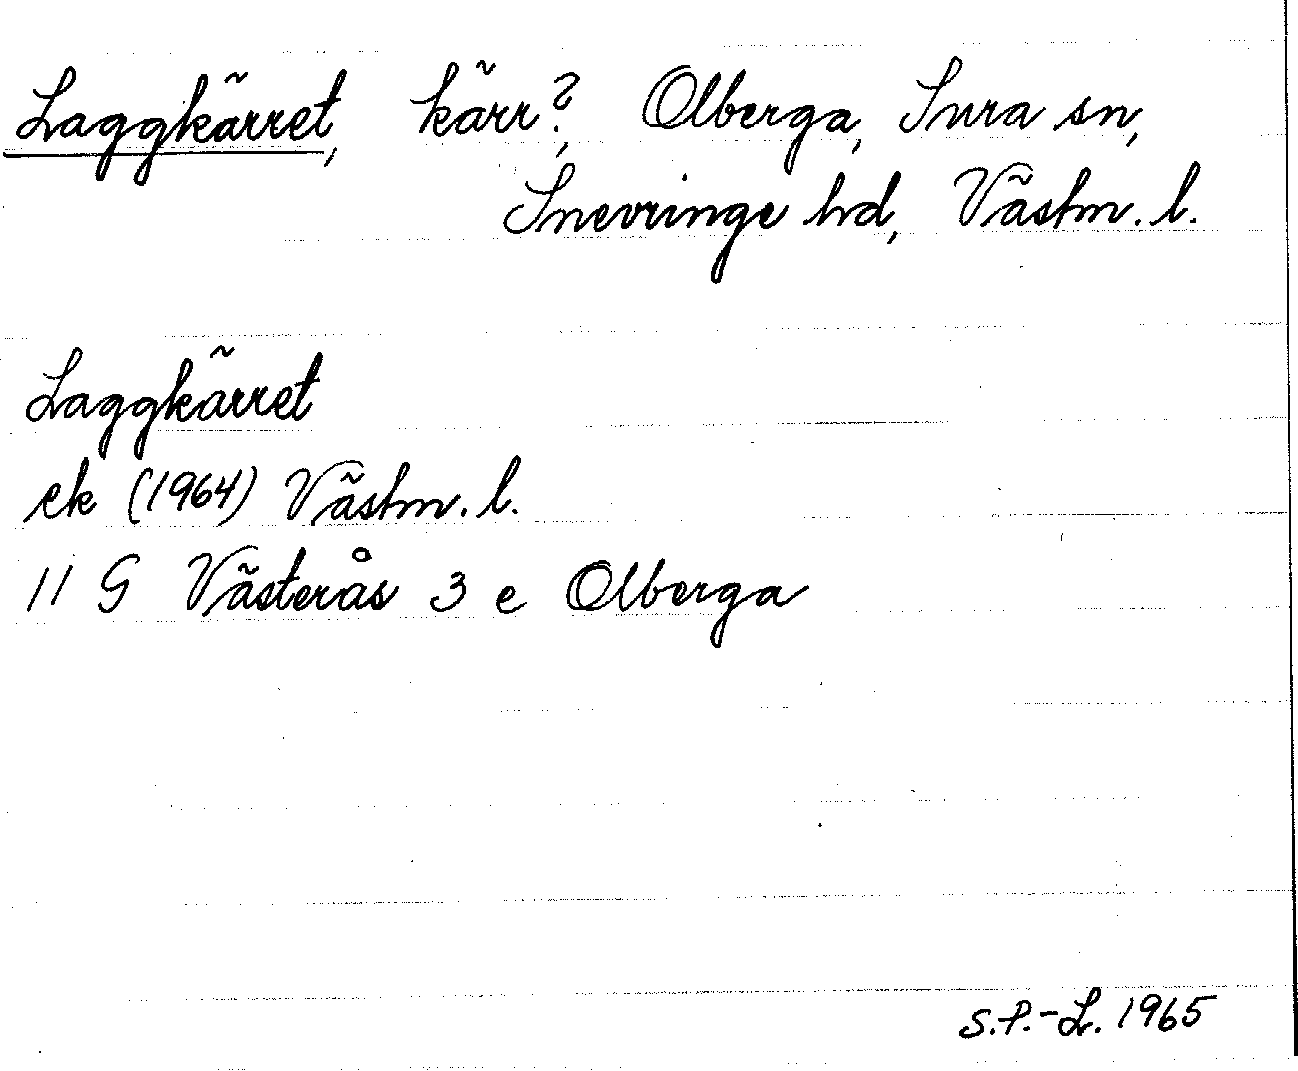 Laggkärret, kärr?, Olberga, Sura sn,
Snevringe hd, Västm. l.
Laggkärret
ek (1964) Västm. l.
11 G Västerås 3 e Olberga
S.P.-L. 1965